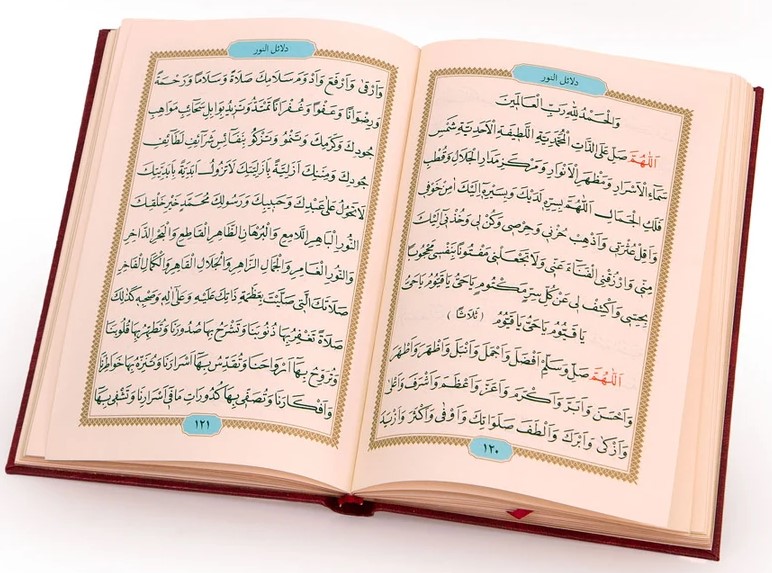 دلائل النور
وَالْحَمْدُ لِلّٰهِ رَبِّ الْعَالَمِينَ
اَللّٰهُمَّ صَلِّ عَلَى الذَّاتِ الْمُحَمَّدِيَّةِ اللَّطِيفَةِ الْاَحَدِيَّةِ شَمْسِ
سَمَاءِ الْاَسْرَارِ وَمَظْهَرِ الْاَنْوَارِ وَمَرْكَزِ مَدَارِ الْجَلَالِ وَقُطْبِ
فَلَكِ الْجَمَالِ اَللّٰهُمَّ بِسِرِّهِ لَدَيْكَ وَبِسَيْرِهِ اِلَيْكَ اٰمِنْ خَوْفِي
وَاَقِلْ عُثْرَتِي وَاَذْهِبْ حُزْنِي وَحِرْصِي وَكُنْ لِي وَخُذْنِي اِلَيْكَ
مِنِّي وَارْزُقْنِي الْفَنَاءَ عَنِّي وَلَا تَجْعَلْنِي مَفْتُونًا بِنَفْسِي مَحْجُوبًا
بِحِسِّي وَاكْشِفْ لِي عَنْ كُلِّ سِرٍّ مَكْتُومٍ يَا حَيُّ يَا قَيُّومُ يَا حَيُّ
يَا قَيُّومُ يَا حَيُّ يَا قَيُّومُ (ثَلَاثًا)
اَللّٰهُمَّ صَلِّ وَسَلِّمْ اَفْضَلَ وَاَجْمَلَ وَاَنْبَلَ وَاَظْهَرَ وَاَطْهَرَ
وَاَحْسَنَ وَاَبَرَّ وَاَكْرَمَ وَاَعَزَّ وَاَعْظَمَ وَاَشْرَفَ وَاَعْلٰى
وَاَزْكٰى وَاَبْرَكَ وَاَلْطَفَ صَلَوَاتِكَ وَاَوْفٰى وَاَكْثَرَ وَاَزْيَدَ
١٢٠
دلائل النور
وَاَرْقٰى وَاَرْفَعَ وَاَدْوَمَ سَلَامِكَ صَلَاةً وَسَلَامًا وَرَحْمَةً
وَرِضْوَانًا وَعَفْوًا وَغُفْرَانًا تَمْتَدُّ وَتَزِيدُ بِوَابِلِ سَحَائِبِ مَوَاهِبِ
جُودِكَ وَكَرَمِكَ وَتَنْمُو وَتَزْكُو بِنَفَائِسِ شَرَائِفِ لَطَائِفِ
جُودِكَ وَمِنَنِكَ اَزَلِيَّةً بِاَزَلِيَّتِكَ لَا تَزُولُ اَبَدِيَّةً بِاَبَدِيَّتِكَ
لَا تَحُولُ عَلٰى عَبْدِكَ وَحَبِيبِكَ وَرَسُولِكَ مُحَمَّدٍ خَيْرِ خَلْقِكَ
النُّورِ الْبَاهِرِ اللَّامِعِ وَالْبُرْهَانِ الظَّاهِرِ الْقَاطِعِ وَالْبَحْرِ الذَّاخِرِ
وَالنُّورِ الْغَامِرِ وَالْجَمَالِ الزَّاهِرِ وَالْجَلَالِ الْقَاهِرِ وَالْكَمَالِ الْفَاخِرِ
صَلَاتَكَ الَّتِي صَلَّيْتَ بِعَظَمَةِ ذَاتِكَ عَلَيْهِ وَعَلٰى اٰلِهِ وَصَحْبِهِ كَذٰلِكَ
صَلَاةً تَغْفِرُ بِهَا ذُنُوبَنَا وَتَشْرَحُ بِهَا صُدُورَنَا وَتُطَهِّرُ بِهَا قُلُوبَنَا
وَتُرَوِّحُ بِهَا اَرْوَاحَنَا وَتُقَدِّسُ بِهَا اَسْرَارَنَا وَتُنَزِّهُ بِهَا خَوَاطِرَنَا
وَاَفْكَارَنَا وَتُصَفِّي بِهَا كُدُورَاتِ مَا فِي اَسْرَارِنَا وَتَشْفِي بِهَا
١٢١